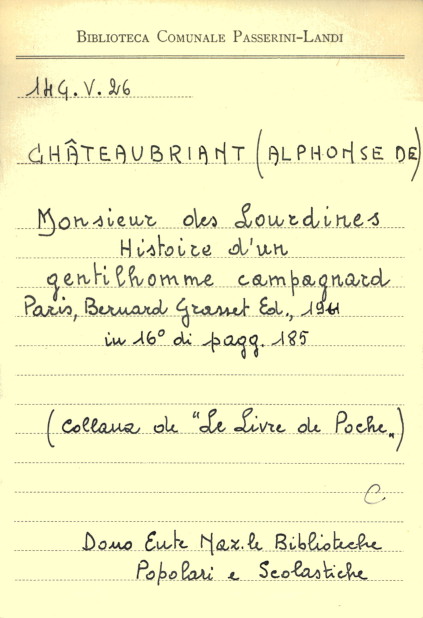 BIBLIOTECA COMUNALE PASSERINI-LANDI
14G.V.26
CHÂTEAUBRIANT (ALPHONSE DE)
Monsieur des Lourdines
Histoire d'un
gentilhomme campagnard
Paris, Bernard Grasset Ed., 1941
in 16° di pagg. 185
(collana de "Le Livre de Poche„)
C
Dono Ente Naz.le Biblioteche
Popolari e Scolastiche